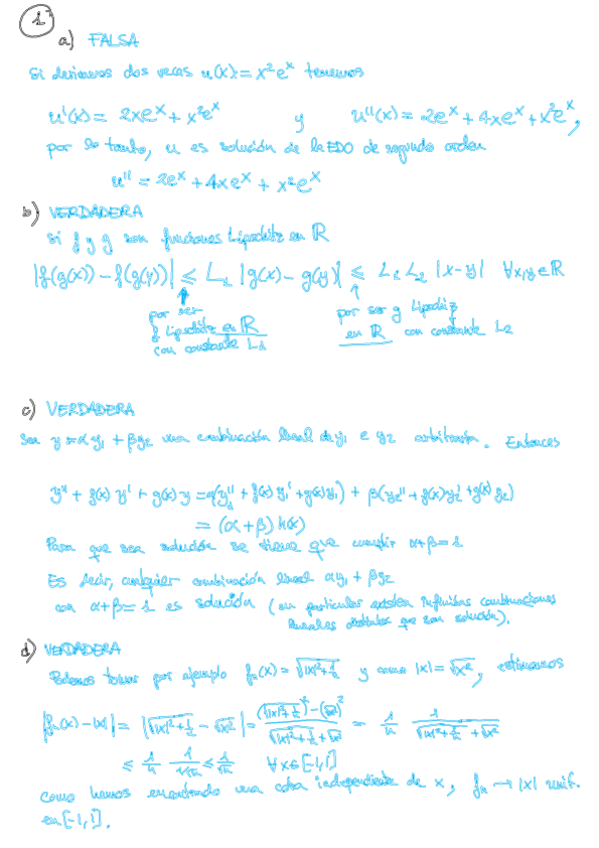 1
a) FALSA
Si derivamos dos veces u(x):= x²eˣ tenemos
u'(x) = 2xeˣ + x²eˣ y u''(x) = 2eˣ + 4xeˣ + x²eˣ,
por lo tanto, u es solución de la EDO de segundo orden
u'' = 2eˣ + 4xeˣ + x²eˣ
b) VERDADERA
Si f y g son funciones Lipschitz en ℝ
|f(g(x)) - f(g(y))| ≤ L₁ |g(x) - g(y)| ≤ L₁ L₂ |x-y| ∀x,y∈ℝ
por ser f Lipschitz en ℝ con constante L₁
por ser g Lipschitz en ℝ con constante L₂
c) VERDADERA
Sea y = αy₁ + βy₂ una combinación lineal de y₁ e y₂ arbitraria. Entonces
y'' + f(x) y' + g(x) y = α(y₁'' + f(x) y₁' + g(x) y₁) + β(y₂'' + f(x) y₂' + g(x) y₂)
= (α+β) h(x)
Para que sea solución se tiene que cumplir α+β=1
Es decir, cualquier combinación lineal αy₁ + βy₂
con α+β=1 es solución (en particular existen infinitas combinaciones
lineales distintas que son solución).
d) VERDADERA
Podemos tomar por ejemplo fₙ(x) = √(|x|²+1/n) y como |x| = √x², estimamos
|fₙ(x)-|x|| = |√(|x|²+1/n) - √x²| = ((√(|x|²+1/n))² - (√x²)²)/(√(|x|²+1/n) + √x²) = 1/n · 1/(√(|x|²+1/n) + √x²)
≤ 1/n · 1/√(1/n) ≤ 1/√n ∀x∈[-1,1]
Como hemos encontrado una cota independiente de x, fₙ → |x| unif.
en [-1,1].